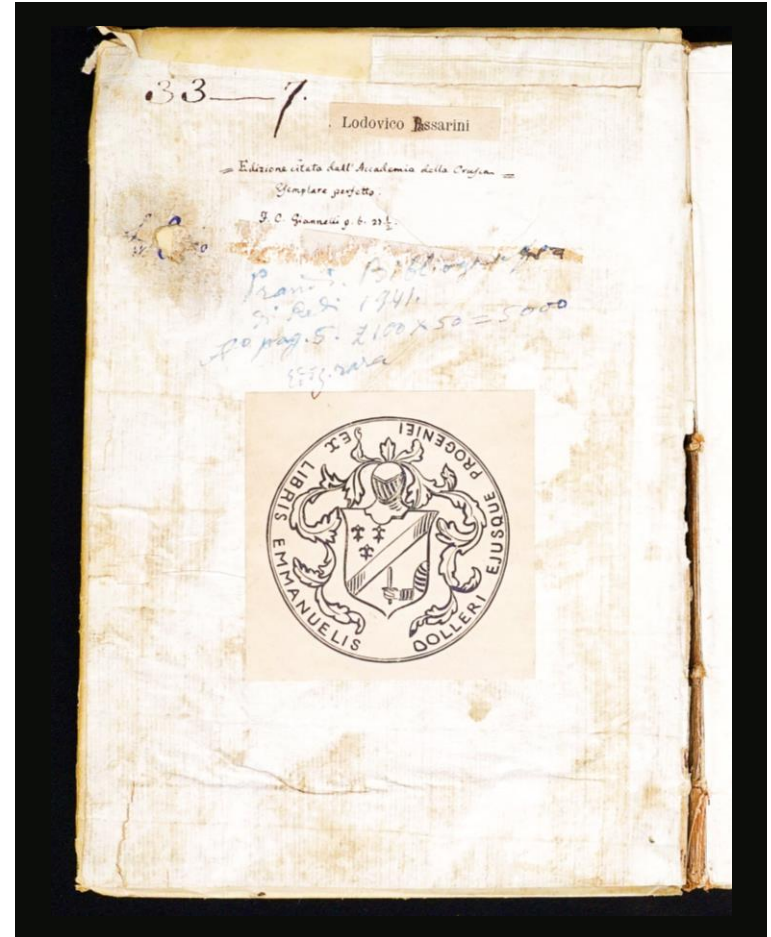 33—7.
Lodovico Passarini
= Edizione citata dall'Accademia della Crusca =
Esemplare perfetto.
F. C. Giannelli g. b. 27½.
Bibliografia
di Redi 1941.
pag. 5. £100 x 50 = 5000
rara
EX LIBRIS EMMANUELIS DOLLERI EJUSQUE PROGENIEI